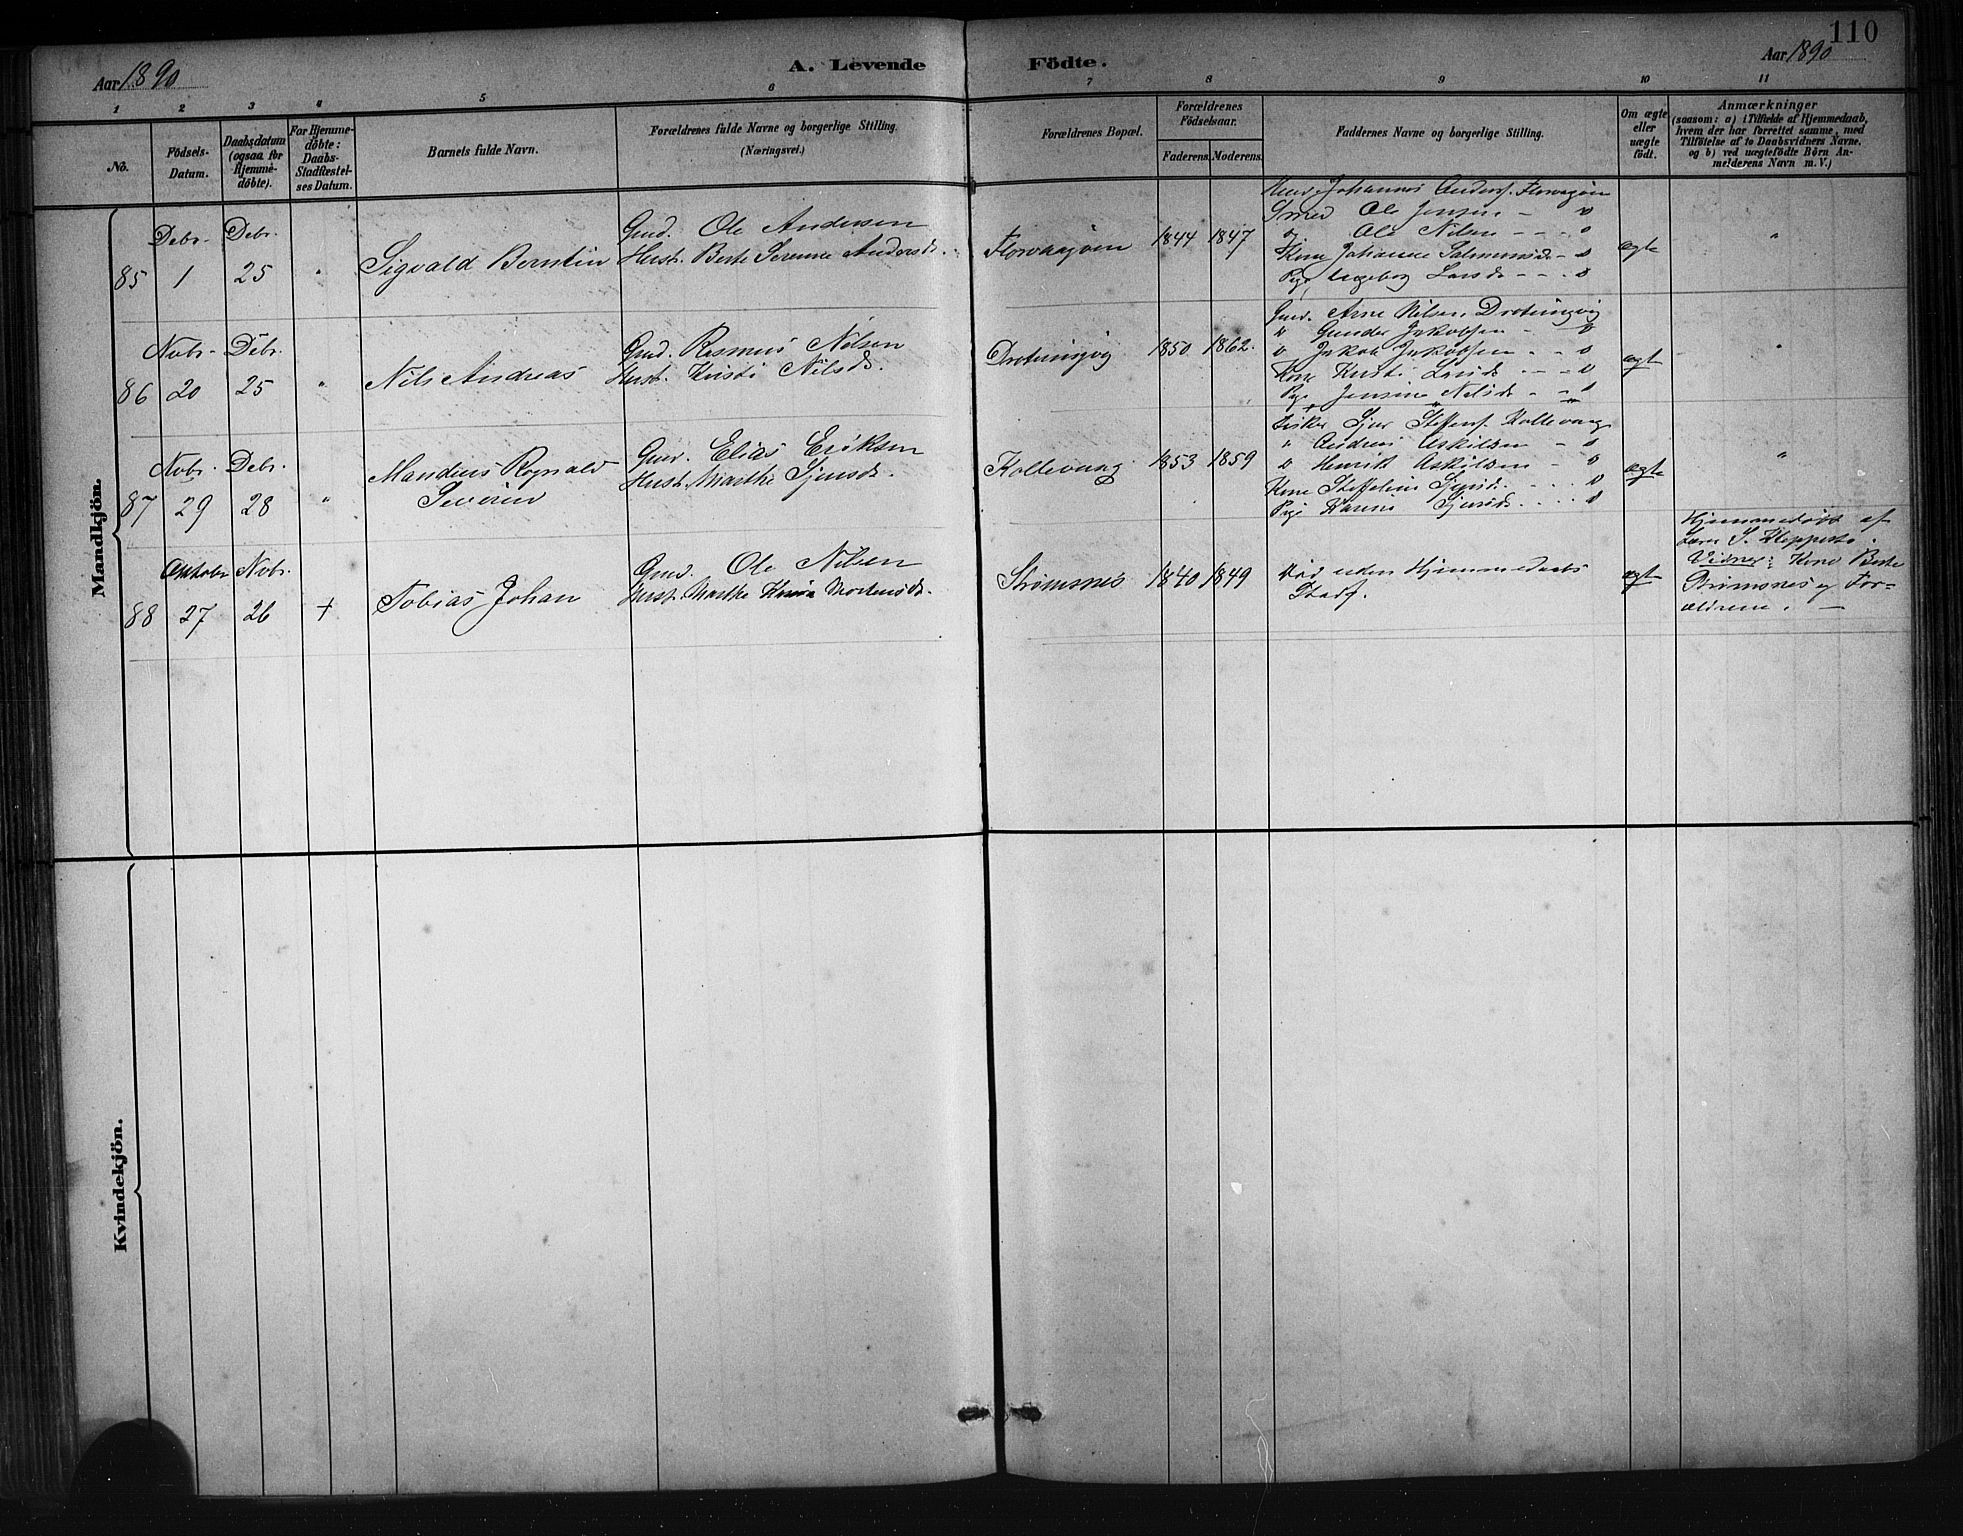 110
Aar 1890
A. Levende Födte.
Aar 1890
1 2 3 4 5 6 7 8 9 10 11
No.
Födsels-Datum.
Daabsdatum (ogsaa for Hjemmedöbte).
For Hjemmedöbte: Daabs-Stadfæstelses Datum.
Barnets fulde Navn.
Forældrenes fulde Navne og borgerlige Stilling.
(Næringsvei.)
Forældrenes Bopæl.
Forældrenes Födselsaar.
Faderens. Moderens.
Faddernes Navne og borgerlige Stilling.
Om ægte eller uægte födt.
Anmærkninger
(saasom: a) i Tilfælde af Hjemmedaab,
hvem der har forrettet samme, med
Tilföielse af to Daabsvidners Navne,
og b) ved uægtefödte Börn An-
melderens Navn m. V.)
Mandkjön.
85
Debr. 1
Debr. 25
"
Sigvald Berntin
Gmd. Ole Andersen
Hust. Berte Serenne Andersd.
Florvaagøen
1844 1847
Johannes Anders. Florvagøen
Smed Ole Jensen - "
Ole Nilsen - - - "
Kone Johanne Salmonsd. - "
Pige Ingeborg Larsd. - - "
ægte
"
86
Nvbr. 20
Debr. 25
"
Nils Andreas
Gmd. Rasmus Nilsen
Hust. Kristi Nilsd.
Drotningvig
1850. 1862.
Gmd. Arne Nilsen, Drotningvig
" Gunder Jakobsen - "
" Jakob Jakobsen - - "
Kone Kristi Larsd. - - - "
Pige Jensine Nilsd. - - "
ægte
"
87
Nvbr. 29
Debr. 28
"
Mandius Rognald
Severin
Gmd. Elias Eriksen
Hust. Marthe Sjursd.
Kollevaag
1853 1859
Fisker Sjur Steffens. Kollevaag
" Andreas Askildsen - "
" Henrik Askildsen - "
Kone Steffeline Sjursd. - - - "
Pige Karine Sjursd. - - - "
ægte
"
88
Oktober 27
Nvbr. 26
+
Tobias Johan
Gmd. Ole Nilsen
Hust. Marthe Mortensd.
Strømsnes
1840 1849
Død uden Hjemmedaabs
Stadf.
ægte
Hjemmedøbt af
Lærer S. Kleppestø.
Vidner: Kone Berte
Strømsnes og For-
ældrene. -
Kvindekjön.